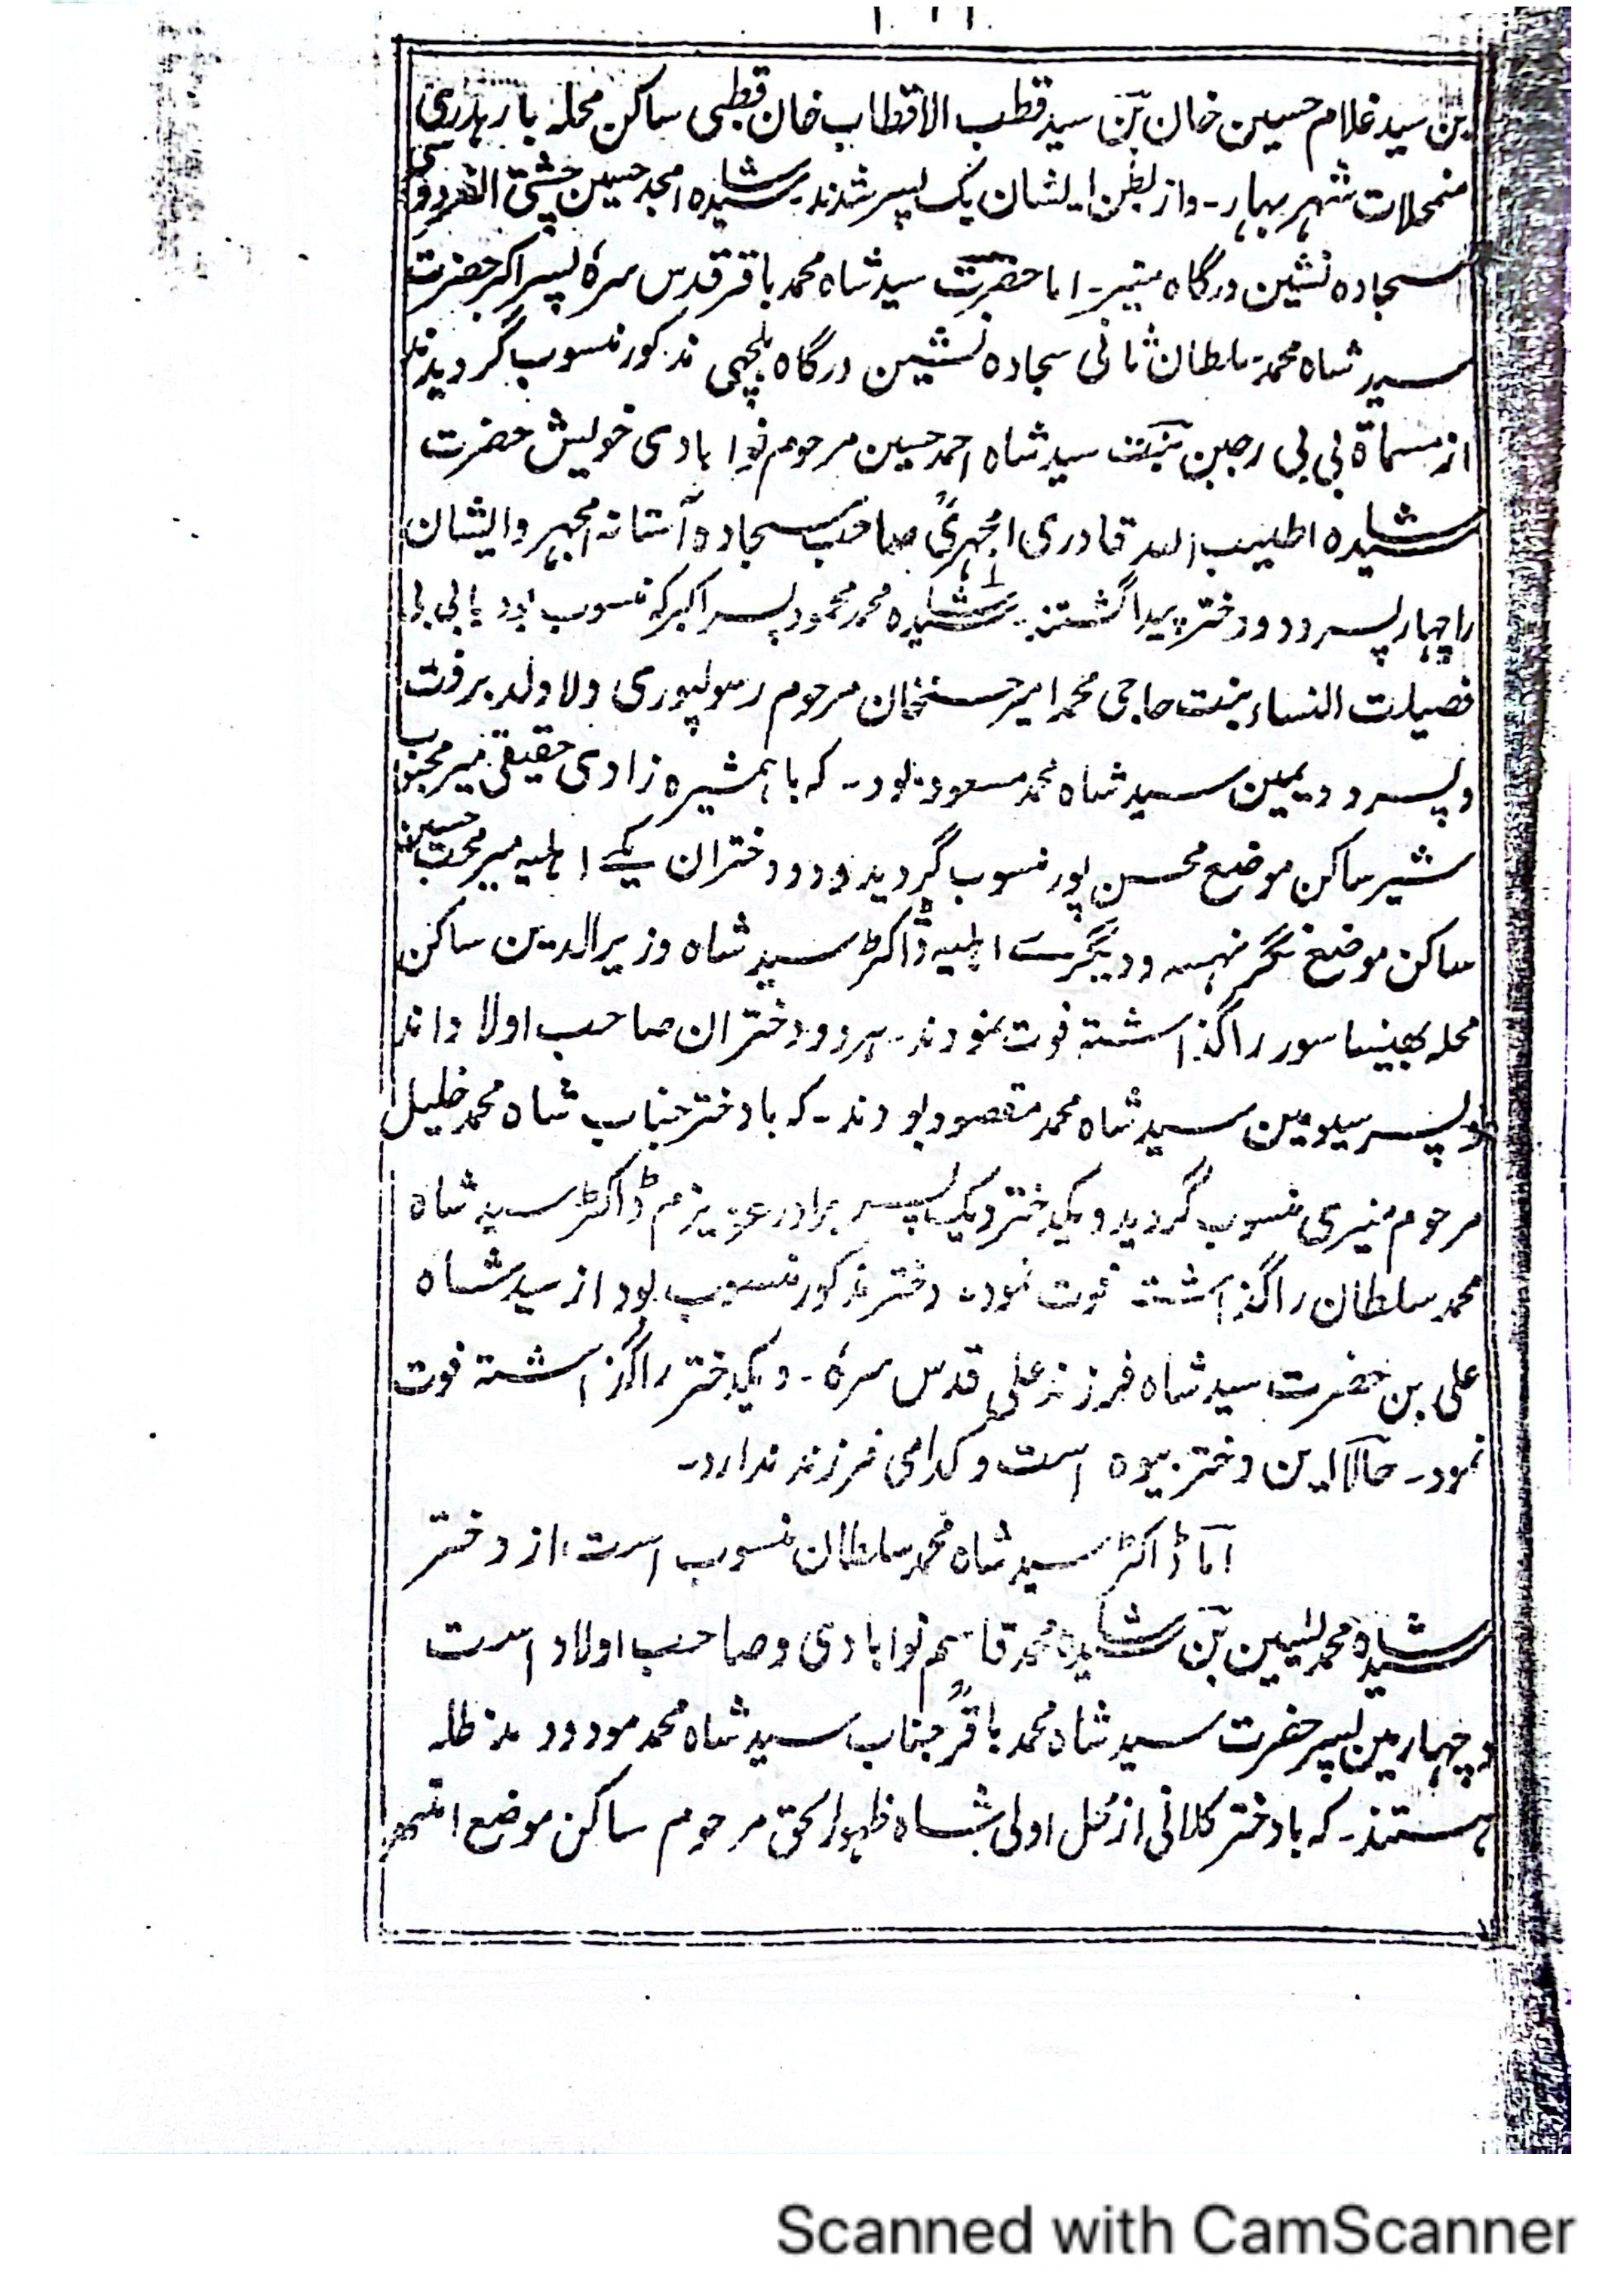 بن سید غلام حسین خان بن سید قطب الاقطاب خان قطبی ساکن محله بارہدری
منمحلات شہر بہار۔ واز بطن ایشان یک پسر شدند۔ سید شاہ امجد حسین چشتی الفردوسی
سجادہ نشین درگاہ منیر۔ اما حضرت سید شاہ محمد باقر قدس سرہٗ پسر اکبر حضرت
سید شاہ محمد سلطان ثانی سجادہ نشین درگاہ بلچہی مذکور منسوب گردیدند
از مسماۃ بی بی رجبن بنت سید شاہ احمد حسین مرحوم نوابادی خویش حضرت
سید شاہ اطیب اللہ قادری امجہری صاحب سجادہ آستانہ امجہر وایشان
را چہار پسر و دو دختر پیدا گشتند۔ سید شاہ محمد محمود پسر اکبر کہ منسوب بود با بی بی
فضیلت النساء بنت حاجی محمد امیر حسنخان مرحوم رسولپوری ولاولد برفت
وپسر دویمین سید شاہ محمد مسعود بود۔ کہ با ہمشیرہ زادی حقیقی میر محبوب
شیر ساکن موضع محسن پور منسوب گردید ودو دختران یکے اہلیہ میر محب حسین
ساکن موضع نگر نہسہ ودیگرے اہلیہ ڈاکٹر سید شاہ وزیرالدین ساکن
محلہ بھینساسور را گذاشتہ فوت نمودند۔ ہر دو دختران صاحب اولاد اند
وپسر سیومین سید شاہ محمد مقصود بودند۔ کہ با دختر جناب شاہ محمد خلیل
مرحوم منیری منسوب گردید ویکدختر ویک پسر برادر عزیزم ڈاکٹر سید شاہ
محمد سلطان را گذاشتہ فوت نمود۔ دختر مذکور منسوب بود از سید شاہ
علی بن حضرت سید شاہ فرزند علی قدس سرہٗ۔ ویکدختر را گزاشتہ فوت
نمود۔ حالاً این دختر بیوہ است وکدامی فرزند ندارد۔
اما ڈاکٹر سید شاہ محمد سلطان منسوب است از دختر
سید شاہ محمد یٰسین بن سید شاہ محمد قاسم نوابادی وصاحب اولاد است
وچہارمین پسر حضرت سید شاہ محمد باقرؒ جناب سید شاہ محمد مودود مدظلہ
ہستند۔ کہ با دختر کلانی از محل اولی شاہ ظہورالحق مرحوم ساکن موضع
Scanned with CamScanner